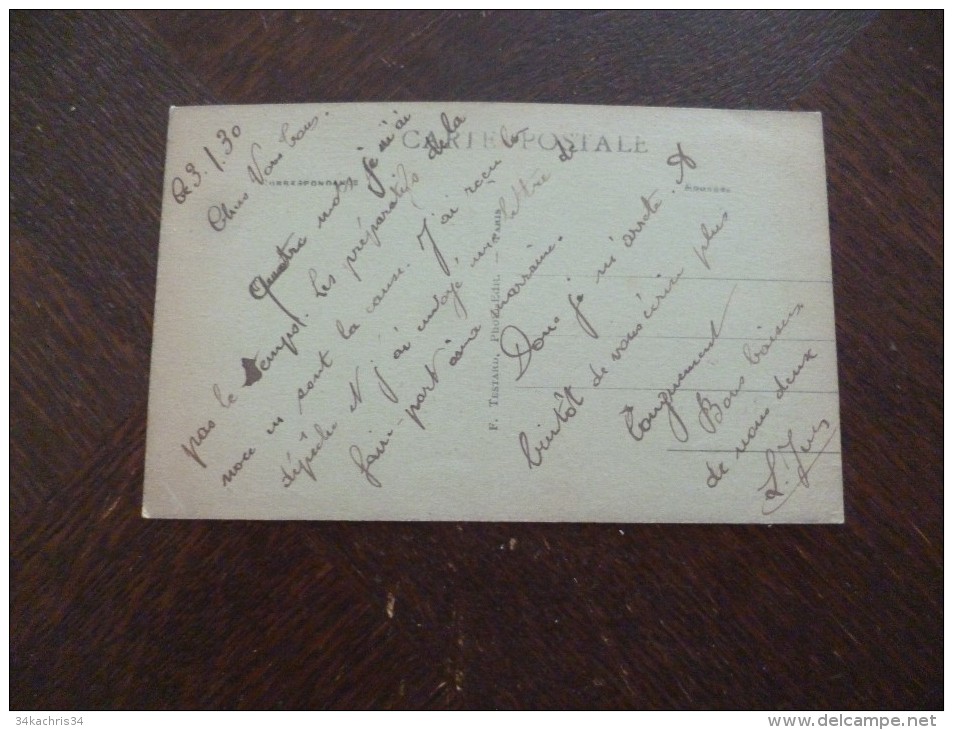 CARTE POSTALE
CORRESPONDANCE
ADRESSE
Le 3.1.30
Chers Vous trois.
Quatre mots je n'ai
pas le temps. Les préparatifs de la
noce en sont la cause. J'ai reçu la
dépêche N j'ai envoyé une lettre de
faire-part à ma marraine.
Donc je m'arrête. A
bientôt de vous écrire plus
longuement
Bons baisers
de nous deux
F. TESTARD, PHOT. EDIT. —
34kachris34
www.delcampe.net